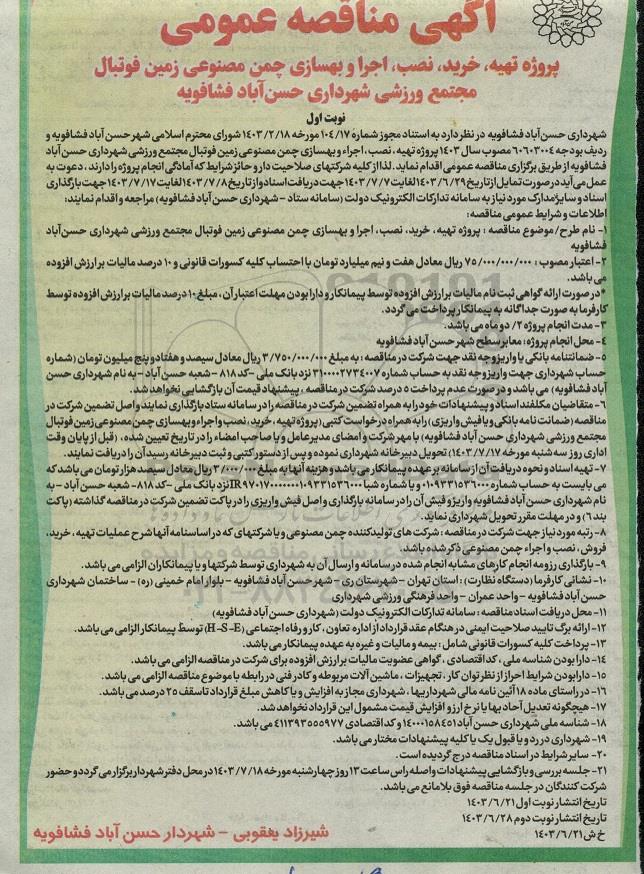 آگهی مناقصه عمومی
پروژه تهیه، خرید، نصب، اجرا و بهسازی چمن مصنوعی زمین فوتبال
مجتمع ورزشی شهرداری حسن‌آباد فشافویه
نوبت اول
شهرداری حسن آباد فشافویه در نظر دارد به استناد مجوز شماره ۱۰۴/۱۷ مورخه ۱۴۰۳/۲/۱۸ شورای محترم اسلامی شهر حسن آباد فشافویه و
ردیف بودجه ۶۰۶۰۳۰۰۴ مصوب سال ۱۴۰۳ پروژه تهیه، نصب، اجراء و بهسازی چمن مصنوعی زمین فوتبال مجتمع ورزشی شهرداری حسن آباد
فشافویه از طریق برگزاری مناقصه عمومی اقدام نماید. لذا از کلیه شرکتهای صلاحیت دار و حائز شرایط که آمادگی انجام پروژه را دارند، دعوت به
عمل می‌آید در صورت تمایل از تاریخ ۱۴۰۳/۶/۲۹ لغایت ۱۴۰۳/۷/۷ جهت دریافت اسناد و از تاریخ ۱۴۰۳/۷/۸ لغایت ۱۴۰۳/۷/۱۷ جهت بارگذاری
اسناد و سایر مدارک مورد نیاز به سامانه تدارکات الکترونیک دولت (سامانه ستاد - شهرداری حسن آباد فشافویه) مراجعه و اقدام نمایند:
اطلاعات و شرایط عمومی مناقصه:
۱- نام طرح/ موضوع مناقصه : پروژه تهیه، خرید، نصب، اجرا و بهسازی چمن مصنوعی زمین فوتبال مجتمع ورزشی شهرداری حسن‌آباد
فشافویه
۲- اعتبار مصوب : ۷۵/۰۰۰/۰۰۰/۰۰۰ ریال معادل هفت و نیم میلیارد تومان با احتساب کلیه کسورات قانونی و ۱۰ درصد مالیات بر ارزش افزوده
می باشد.
*در صورت ارائه گواهی ثبت نام مالیات بر ارزش افزوده توسط پیمانکار و دارا بودن مهلت اعتبار آن، مبلغ ۱۰ درصد مالیات بر ارزش افزوده توسط
کارفرما به صورت جداگانه به پیمانکار پرداخت می گردد.
۳- مدت انجام پروژه ۲/ دو ماه می باشد.
۴- محل انجام پروژه: معابر سطح شهر حسن آباد فشافویه
۵- ضمانتنامه بانکی یا واریز وجه نقد جهت شرکت در مناقصه : به مبلغ ۳/۷۵۰/۰۰۰/۰۰۰ ریال معادل سیصد و هفتاد و پنج میلیون تومان (شماره
حساب شهرداری جهت واریز وجه نقد به حساب شماره ۳۱۰۰۰۰۲۷۳۴۰۰۷ نزد بانک ملی - کد ۸۱۸ - شعبه حسن آباد - به نام شهرداری حسن
آباد فشافویه) می باشد و در صورت عدم پرداخت ۵ درصد شرکت در مناقصه ، پیشنهاد قیمت آن بازگشایی نخواهد شد.
۶- متقاضیان مکلفند اسناد و پیشنهادات خود را به همراه تضمین شرکت در مناقصه را در سامانه ستاد بارگذاری نمایند و اصل تضمین شرکت در
مناقصه (ضمانت نامه بانکی و یا فیش واریزی) را به همراه درخواست کتبی (پروژه تهیه، خرید، نصب و اجراء و بهسازی چمن مصنوعی زمین فوتبال
مجتمع ورزشی شهرداری حسن آباد فشافویه) با مهر شرکت و امضای مدیرعامل و یا صاحب امضاء را در تاریخ تعیین شده، (قبل از پایان وقت
اداری روز سه شنبه مورخه ۱۴۰۳/۷/۱۷) تحویل دبیرخانه شهرداری نموده و پس از دستور کتبی و ثبت دبیرخانه رسید آن را دریافت نمایند.
۷- تهیه اسناد و نحوه دریافت آن از سامانه بر عهده پیمانکار می باشد و هزینه آنها به مبلغ ۳/۰۰۰/۰۰۰ ریال معادل سیصد هزار تومان می باشد که
می بایست به حساب شماره ۰۱۰۹۳۳۱۵۳۶۰۰۰ و یا شماره شبا نزد بانک ملی - کد ۸۱۸ - شعبه حسن آباد - به
نام شهرداری حسن آباد فشافویه واریز و فیش آن را در سامانه بارگذاری و اصل فیش واریزی را در پاکت تضمین شرکت در مناقصه گذاشته (پاکت
بند ۶) و در مهلت مقرر تحویل شهرداری نماید.
۸- رتبه مورد نیاز جهت شرکت در مناقصه : شرکت های تولیدکننده چمن مصنوعی و یا شرکتهای که در اساسنامه آنها شرح عملیات تهیه، خرید،
فروش، نصب و اجراء چمن مصنوعی ذکر شده باشد.
۹- بارگذاری رزومه انجام کارهای مشابه انجام شده در سامانه و ارسال آن به شهرداری توسط شرکتها و یا پیمانکاران الزامی می باشد.
۱۰- نشانی کارفرما (دستگاه نظارت) : استان تهران - شهرستان ری - شهر حسن آباد فشافویه - بلوار امام خمینی (ره) - ساختمان شهرداری
حسن آباد فشافویه - واحد عمران - واحد فرهنگی ورزشی شهرداری
۱۱- محل دریافت اسناد مناقصه : سامانه تدارکات الکترونیک دولت (شهرداری حسن آباد فشافویه)
۱۲- ارائه برگ تایید صلاحیت ایمنی در هنگام عقد قرارداد از اداره تعاون ، کار و رفاه اجتماعی (H-S-E) توسط پیمانکار الزامی می باشد.
۱۳- پرداخت کلیه کسورات قانونی شامل : بیمه و مالیات و غیره به عهده پیمانکار می باشد.
۱۴- دارا بودن شناسه ملی ، کد اقتصادی ، گواهی عضویت مالیات بر ارزش افزوده برای شرکت در مناقصه الزامی می باشد.
۱۵- دارا بودن شرایط احراز از نظر توان کار ، تجهیزات ، ماشین آلات مربوطه و کادر فنی در رابطه با موضوع مناقصه الزامی می باشد.
۱۶- در راستای ماده ۱۸ آئین نامه مالی شهرداریها ، شهرداری مجاز به افزایش و یا کاهش مبلغ قرارداد تا سقف ۲۵ درصد می باشد.
۱۷- هیچگونه تعدیل آحاد بها یا نرخ ارز و افزایش قیمت مشمول این قرارداد نخواهد شد.
۱۸- شناسه ملی شهرداری حسن آباد ۱۴۰۰۰۱۵۸۴۵۱ و کد اقتصادی ۴۱۱۳۹۳۵۵۵۹۷۷ می باشد.
۱۹- شهرداری در رد و یا قبول یک یا کلیه پیشنهادات مختار می باشد.
۲۰- سایر شرایط در اسناد مناقصه درج گردیده است.
۲۱- جلسه بررسی و بازگشایی پیشنهادات واصله راس ساعت ۱۳ روز چهارشنبه مورخه ۱۴۰۳/۷/۱۸ در محل دفتر شهردار برگزار می گردد و حضور
شرکت کنندگان در جلسه مناقصه فوق بلامانع می باشد.
تاریخ انتشار نوبت اول ۱۴۰۳/۶/۲۱
تاریخ انتشار نوبت دوم ۱۴۰۳/۶/۲۸
خ ش ۱۴۰۳/۶/۲۱
شیرزاد یعقوبی - شهردار حسن آباد فشافویه